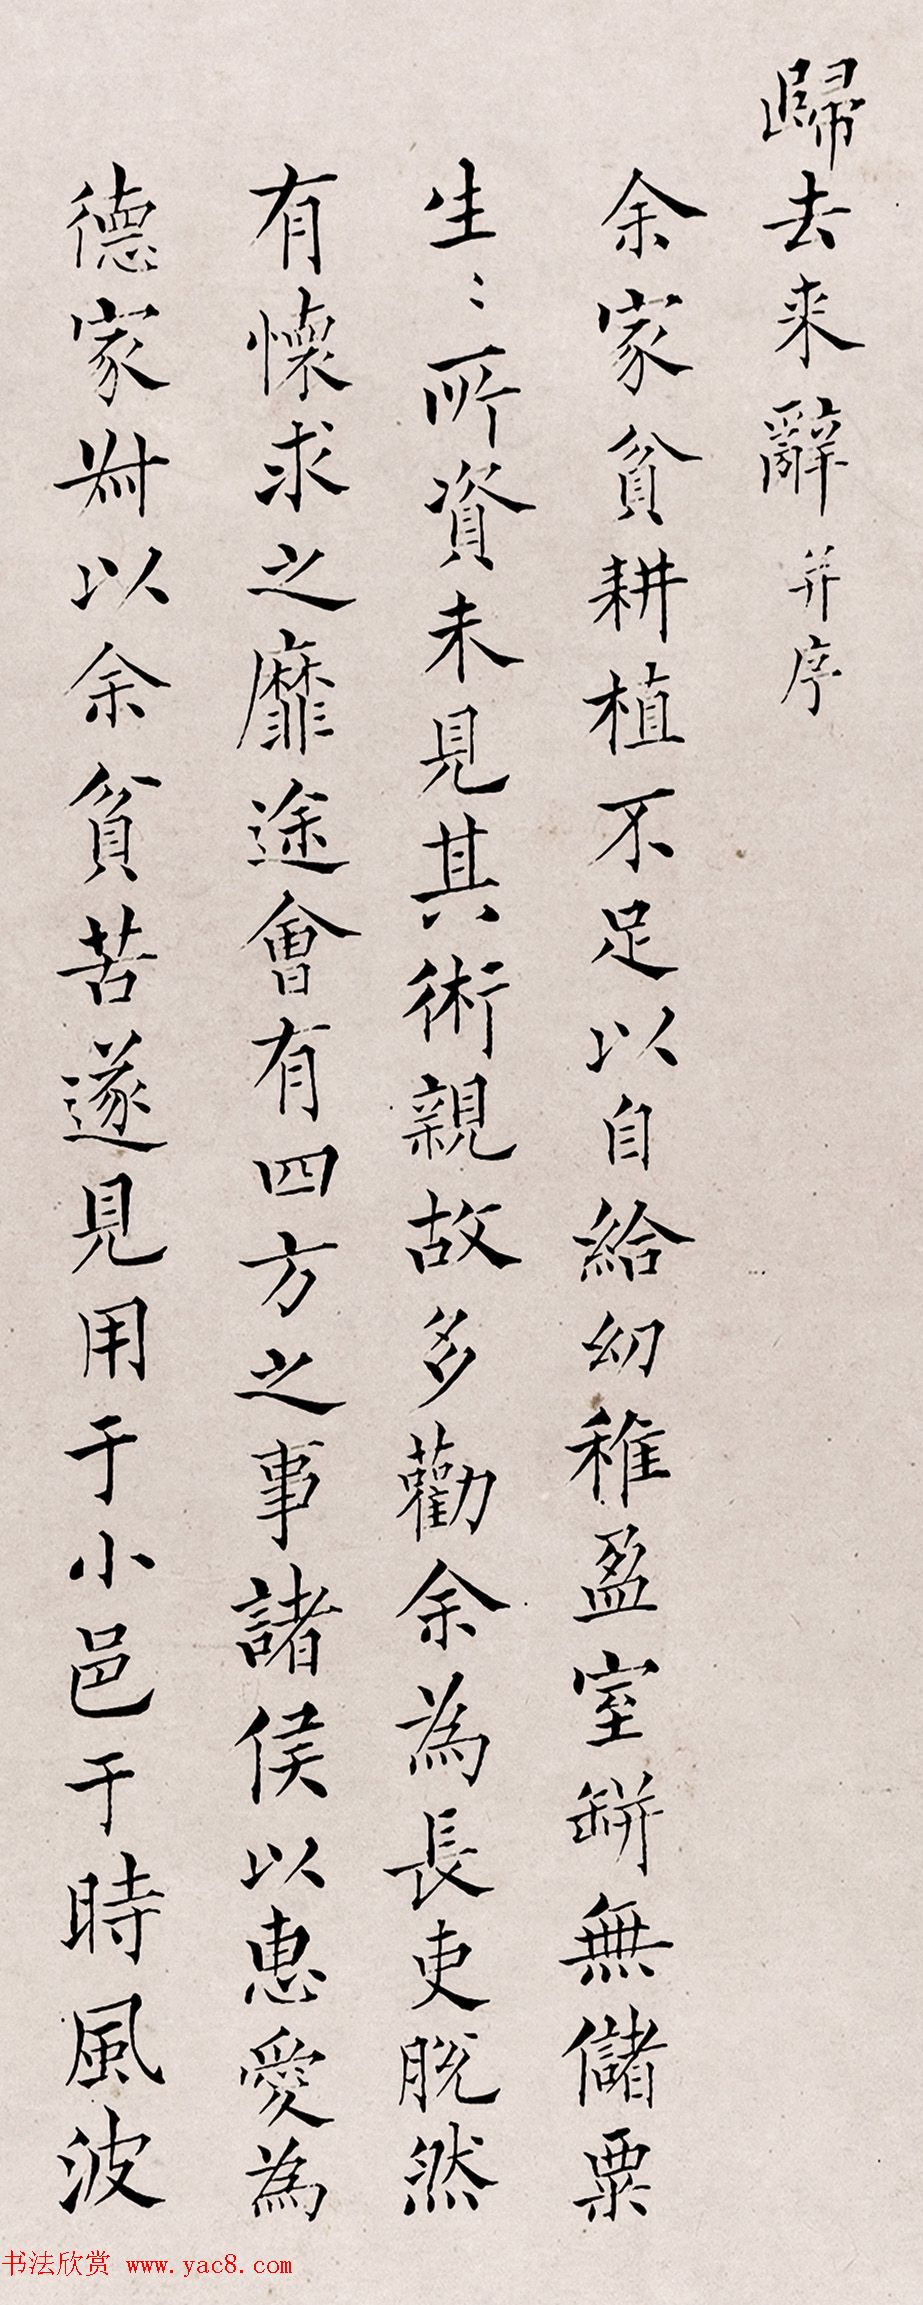 歸去来辭并序
余家貧耕植不足以自給幼稚盈室缾無儲粟
生〻所資未見其術親故多勸余為長吏脱然
有懷求之靡途會有四方之事諸侯以惠愛為
德家叔以余貧苦遂見用于小邑于時風波
书法欣赏 www.yac8.com